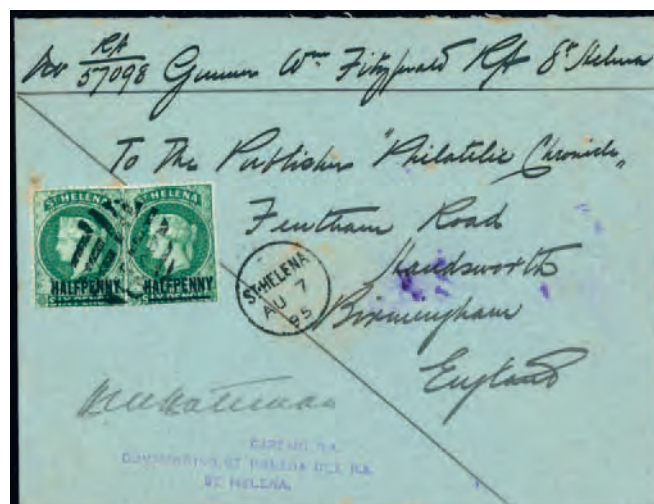 RA
57098 Gunner Wm Fitzgerald RA St Helena
To The Publisher "Philatelic Chronicle"
Fentham Road
Handsworth
Birmingham
England
ST HELENA
HALFPENNY
ST HELENA
HALFPENNY
ST HELENA
AU 7
95
CAPTAIN, R.A.
COMMANDING, ST HELENA DET. R.A.
ST HELENA.